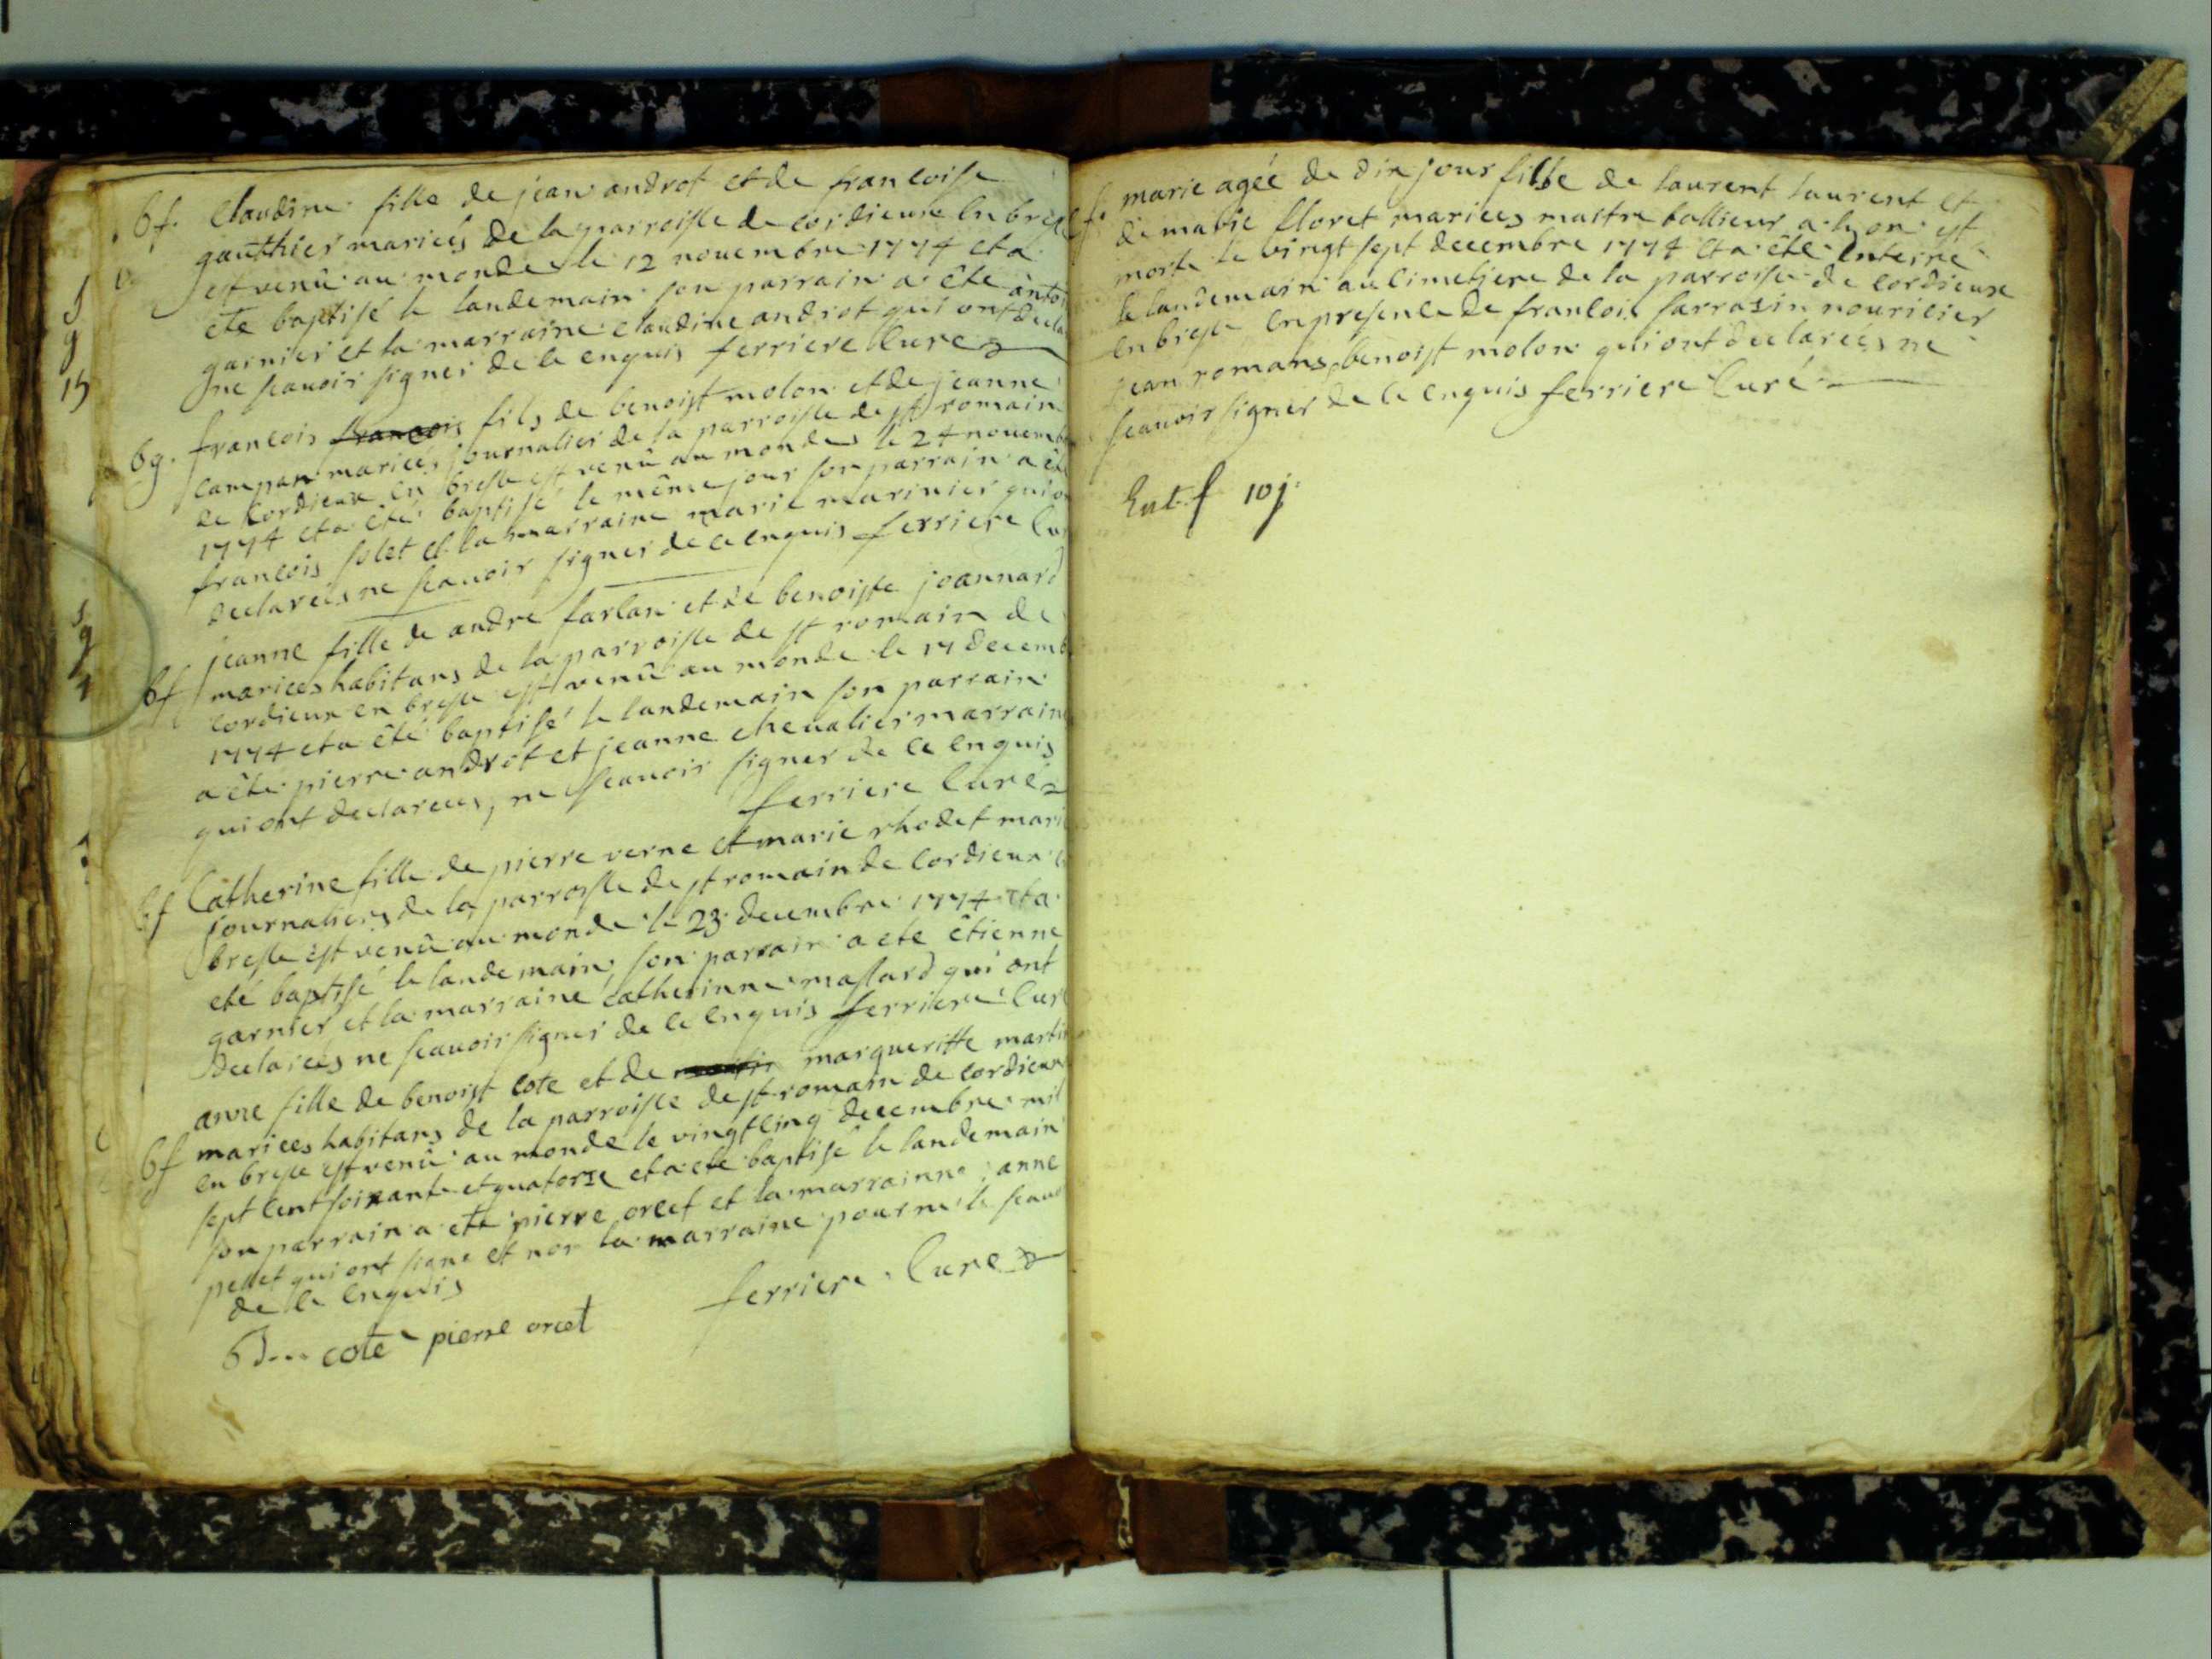 bf. Claudine fille de jean androt et de francoise
gauthier mariees de la parroisse de cordieux en bresse
est venû au monde le 12 novembre 1774 et a
ete baptisé le landemain son parrain a ête anto
garnier et la marraine claudine androt qui ont decla
ne scauoir signer de ce enquis ferriere Curé
bg. francois francois fils de benoist molon et de jeanne
campan mariees journalier de la parroisse de st romain
de Cordieux en bresse est venû au monde le 24 nouemb
1774 et a êté baptisé le même jour son parrain a êt
francois solet et la marraine marie marinier qui o
declarees ne scauoir signer de ce enquis ferriere Cu
bf jeanne fille de andre sarlan et de benoiste joannard
mariees habitans de la parroisse de st romain de
cordieux en bresse est venû au monde le 17 decemb
1774 et a êté baptisé le landemain son parrain
a ête pierre androt et jeanne cheualier marraine
qui ont declarees, ne scauoir signer de ce enquis
ferriere Curé
bf Catherine fille de pierre verne et marie rhodet mari
journaliers de la parroisse de st romain de Cordieux
bresse est venû au monde le 23 decembre 1774 et a
eté baptisé le landemain son parrain a ete êtienne
garnier et la marraine catherinne massard qui ont
declarees ne scauoir signer de ce enquis ferriere Cur
anne fille de benoist cote et de margueritte marti
bf mariees habitans de la parroisse de st romain de cordieux
en bresse est venû au monde le vingt cinq decembre mil
sept cent soixante et quatorze et a ete baptisé le landemain
son parrain a ete pierre orcet et la marrainne anne
pellet qui ont signe et non la marraine pour ne le scauo
de ce enquis
ferriere Curé
cote pierre orcet
f. marie agée de dix jours fille de laurent laurent et
de marie floret mariees maitre tallieur a lyon est
morte le vingt sept decembre 1774 et a ête enterré
le landemain au cimetiere de la parroisse de cordieux
en bresse en presence de francois sarrasin nouricier
jean romans, benoist molon qui ont declareés ne
scauoir signer de ce enquis ferriere Curé
10j